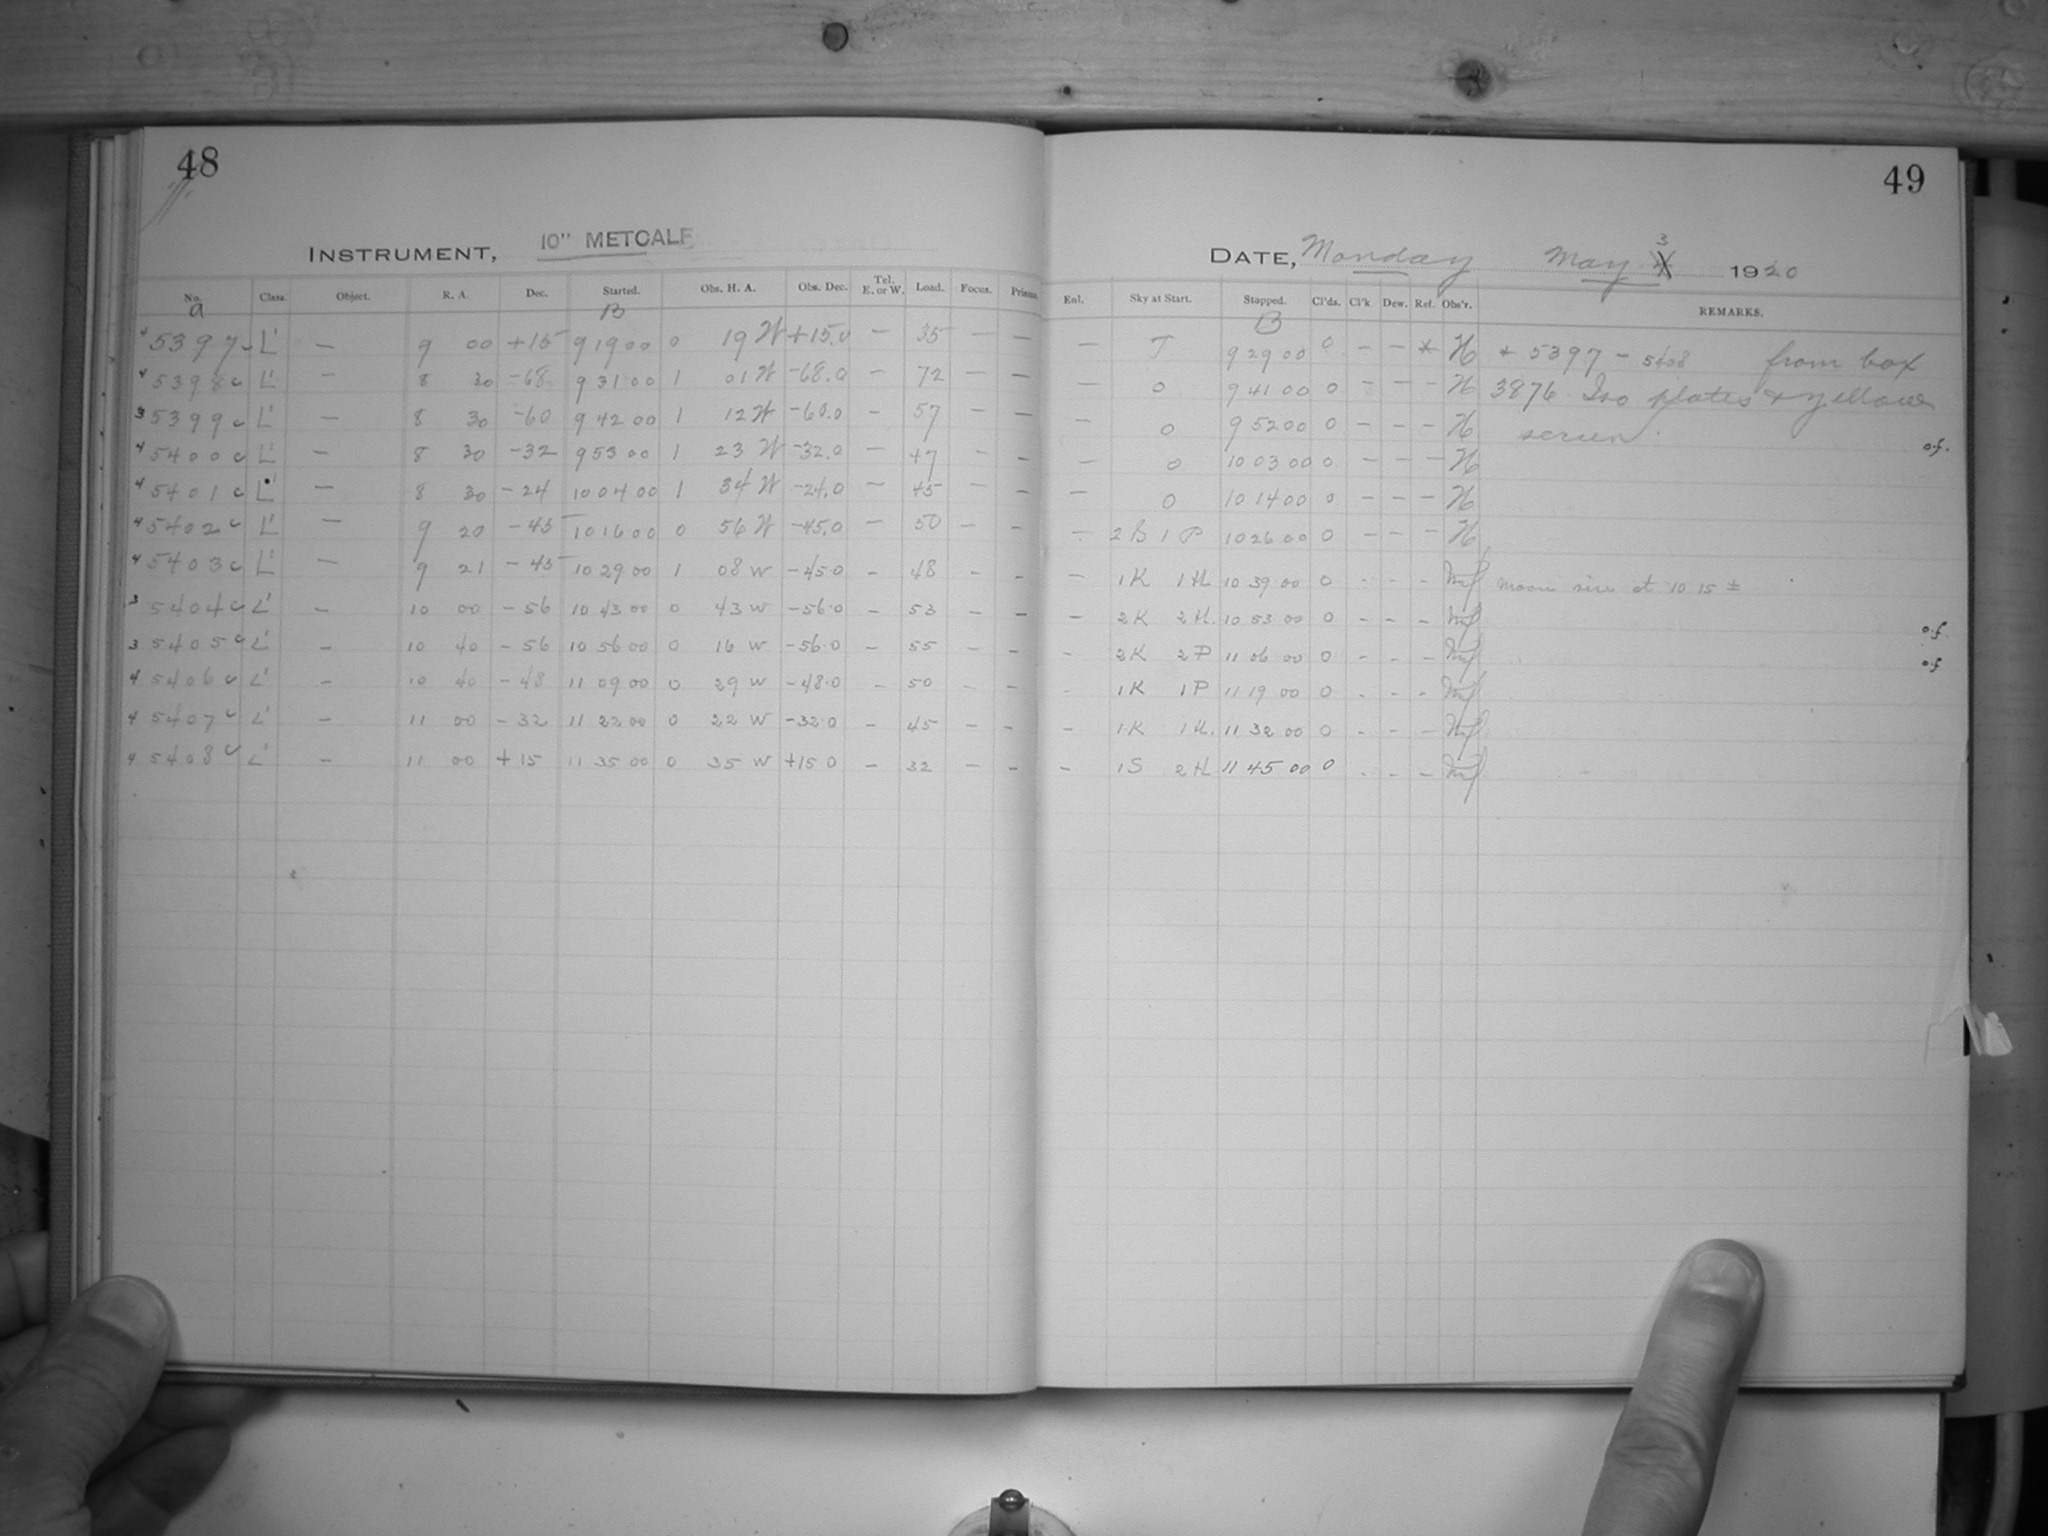 48
INSTRUMENT, 10" METCALF
No. Class. Object. R. A. Dec. Started. Obs. H. A. Obs. Dec. Tel. E. or W. Load. Focus. Prisms.
a B
4 5397 L' — 9 00 +15 9 19 00 0 19 W +15.0 — 35 — —
4 5398 L' — 8 30 -68 9 31 00 1 01 W -68.0 — 72 — —
3 5399 L' — 8 30 -60 9 42 00 1 12 W -60.0 - 57 - —
4 5400 L' — 8 30 -32 9 53 00 1 23 W -32.0 — 47 - —
4 5401 L' — 8 30 -24 10 04 00 1 34 W -24.0 — 45 — -
4 5402 L' — 9 20 -45 10 16 00 0 56 W -45.0 — 50 — -
4 5403 L' — 9 21 -45 10 29 00 1 08 W -45.0 - 48 - -
3 5404 L' — 10 00 -56 10 43 00 0 43 W -56.0 - 53 - -
3 5405 L' — 10 40 -56 10 56 00 0 16 W -56.0 - 55 - -
4 5406 L' — 10 40 -48 11 09 00 0 29 W -48.0 - 50 - -
4 5407 L' — 11 00 -32 11 22 00 0 22 W -32.0 - 45 - -
4 5408 L' — 11 00 +15 11 35 00 0 35 W +15.0 - 32 - -
49
DATE, Monday May 3 1920
Eol. Sky at Start. Stopped. Cl'ds. Cl'k Dew. Ref. Obs'r. REMARKS.
B
— T 9 29 00 0 - - * H * 5397 - 5408 from box
— 0 9 41 00 0 - - - H 3876 Iso plates & yellow
— 0 9 52 00 0 - - - H screen. o.f.
— 0 10 03 00 0 - - - H
— 0 10 14 00 0 - - - H
- 2 B 1 P 10 26 00 0 - - - H
— 1K 1H 10 39 00 0 - - - Moon rise at 10 15 ±
— 2K 2H. 10 53 00 0 - - - o.f.
- 2K 2P 11 06 00 0 - - - o.f
- 1K 1P 11 19 00 0 - - -
- 1K 1H. 11 32 00 0 - - -
- 1S 2H 11 45 00 0 - - -